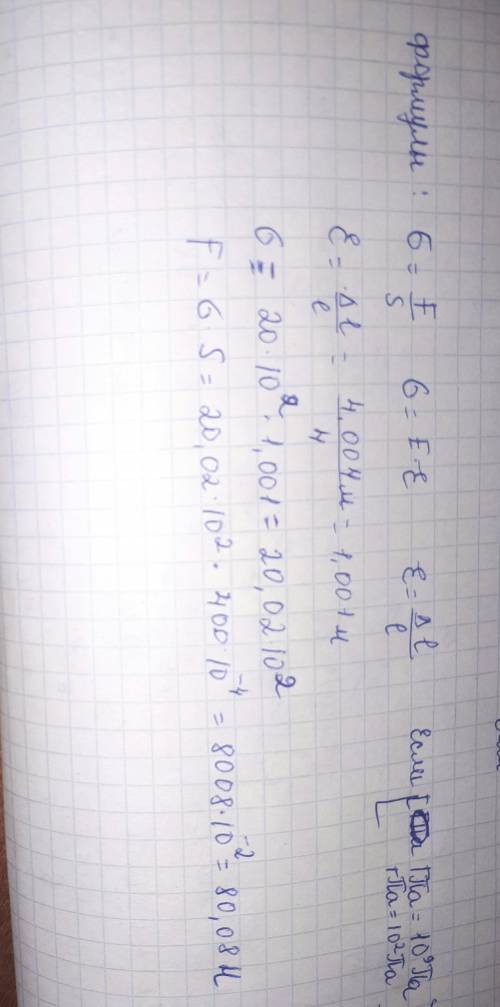 формулы: б = F/S б = E·ε ε = Δl/l Если [ ГПа = 10⁹Па
гПа = 10²Па
ε = Δl/l = 4,004м/4 = 1,001 м
б = 20·10²·1,001 = 20,02 10²
F = б·S = 20,02·10²·400·10⁻⁴ = 8008·10⁻² = 80,08Н